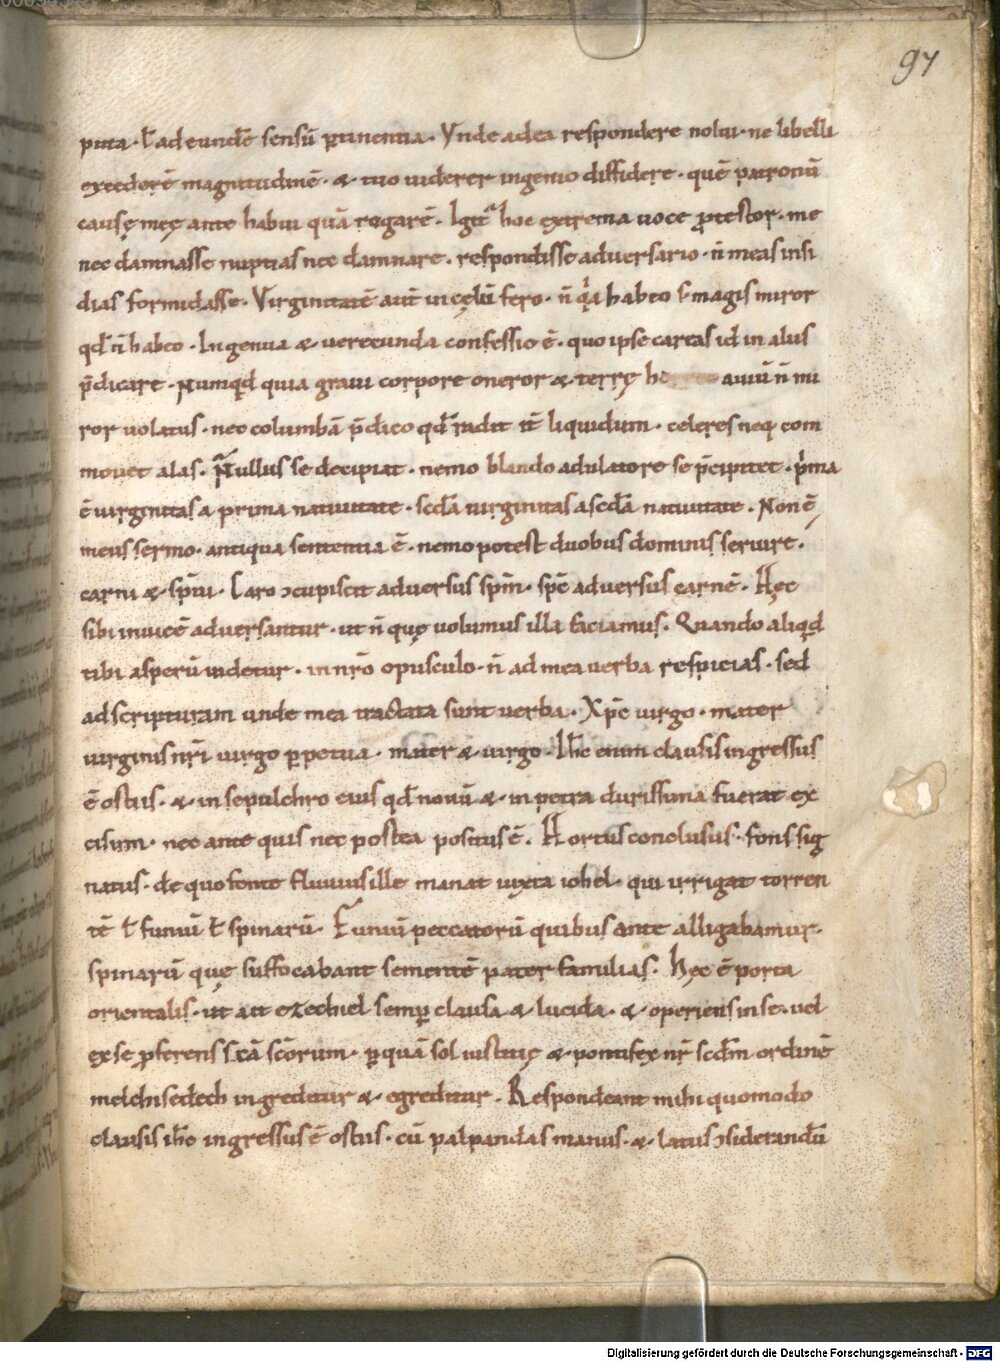 97
puta · ł ad eundē sensū ꝑtinentia · Vnde ad ea respondere nolui · ne libelli
excederē magnitudinē · & tuo uiderer ingenio diffidere · quē patronū
causę męę ante habui quā rogarē · Igit᷑ hoc extrema uoce ꝓtestor · me
nec damnasse nuptias nec damnare · respondisse adversario · n̄ meas insi
dias formidasse · Virginitatē aūt in cęlū fero · n̄ qͥa habeo s; magis miror
qđ n̄ habeo · Ingenua & uerecunda confessio ē · quo ipse careas id in aliis
p̄dicare · Numqđ quia graui corpore oneror & terrę auiū n̄ mi
ror uolatus · nec columbā p̄dico qđ radit it̄ liquidum · celeres neq; com
mouet alas · Nullus se decipiat · nemo blando adulatore se p̄cipitet · pͥma
ē uirginitas a prima natiuitate · scđa uirginitas a scđa natiuitate · Non ē
meus sermo · antiqua sententia ē · nemo potest duobus dominis seruire ·
carni & sp̄ui · Caro ↄcupiscit adversus sp̄m · sp̄c adversus carnē · Hęc
sibi inuicē adversantur · ut n̄ quę uolumus illa faciamus · Quando aliqđ
tibi asperū uidetur · in nr̄o opusculo · n̄ ad mea verba respicias · sed
ad scripturam unde mea tractata sunt verba · Xp̄c uirgo · mater
uirginis nr̄i uirgo ꝑpetua · mater & uirgo · Ih̄c enim clausis ingressus
ē ostiis · & in sepulchro eius qđ nouū & in petra durissima fuerat ex
cisum · nec ante quis nec postea positus ē · Hortus conclusus · fons sig
natus · de quo fonte fluuius ille manat iuxta iohel · qui irrigat torren
tē ł funiū ł spinarū · Funiū peccatorū quibus ante alligabamur ·
spinarū quę suffocabant sementē pater familias · Hęc ē porta
orientalis · ut ait ezechiel semꝑ clausa & lucida · & operiens in se · uel
ex se ꝓferens sc̄a sc̄orum · ꝑ quā sol iustitię & pontifex nr̄ scđm ordinē
melchisedech ingreditur & egreditur · Respondeant mihi quomodo
clausis ih̄c ingressus ē ostiis · cū palpandas manus · & latus ↄsiderandū
Digitalisierung gefördert durch die Deutsche Forschungsgemeinschaft - DFG